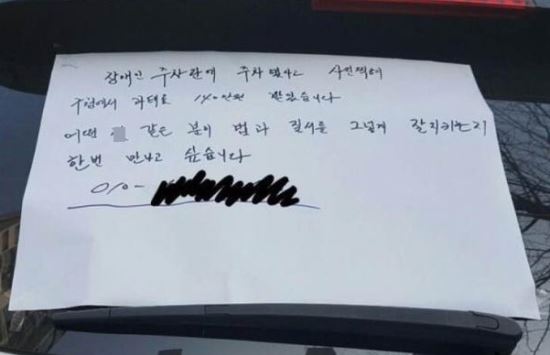 장애인 주차란에 주차 했다고 사진찍혀
구청에서 과태료 140만원 받았습니다
어떤 같은 분이 법과 질서를 그렇게 잘지키는지
한번 만나고 싶습니다
010-